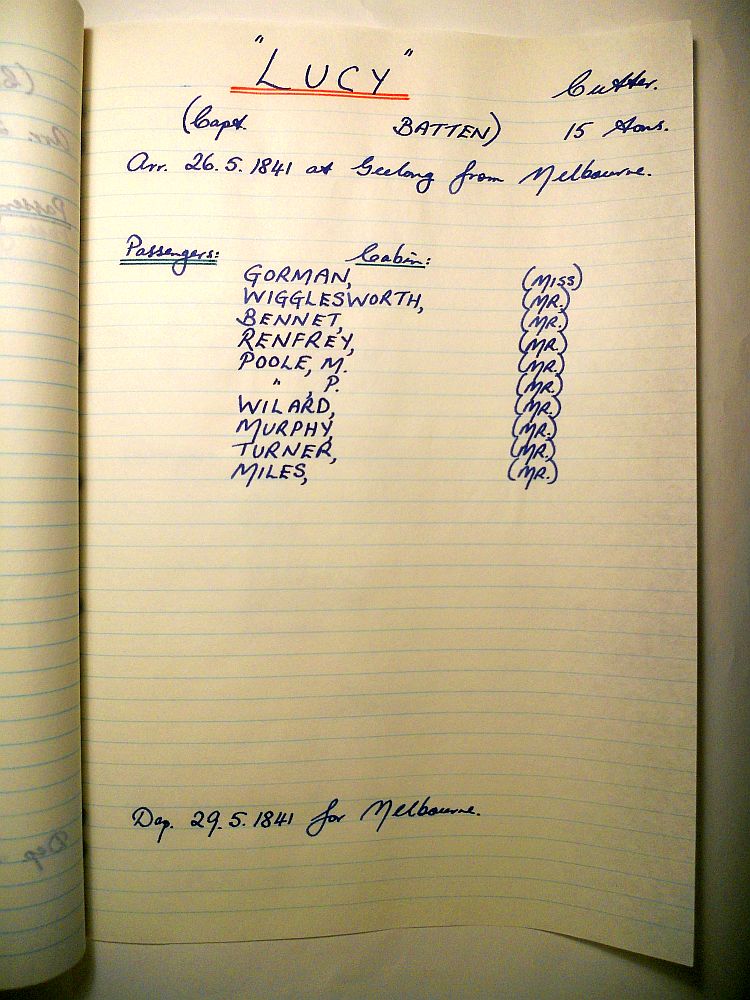 "LUCY" Cutter.
(Capt. BATTEN) 15 tons.
Arr. 26.5.1841 at Geelong from Melbourne.
Passengers: Cabin:
GORMAN, (MISS)
WIGGLESWORTH, (MR.)
BENNET, (MR.)
RENFREY, (MR.)
POOLE, M. (MR.)
" , P. (MR.)
WILARD, (MR.)
MURPHY, (MR.)
TURNER, (MR.)
MILES, (MR.)
Dep. 29.5.1841 for Melbourne.